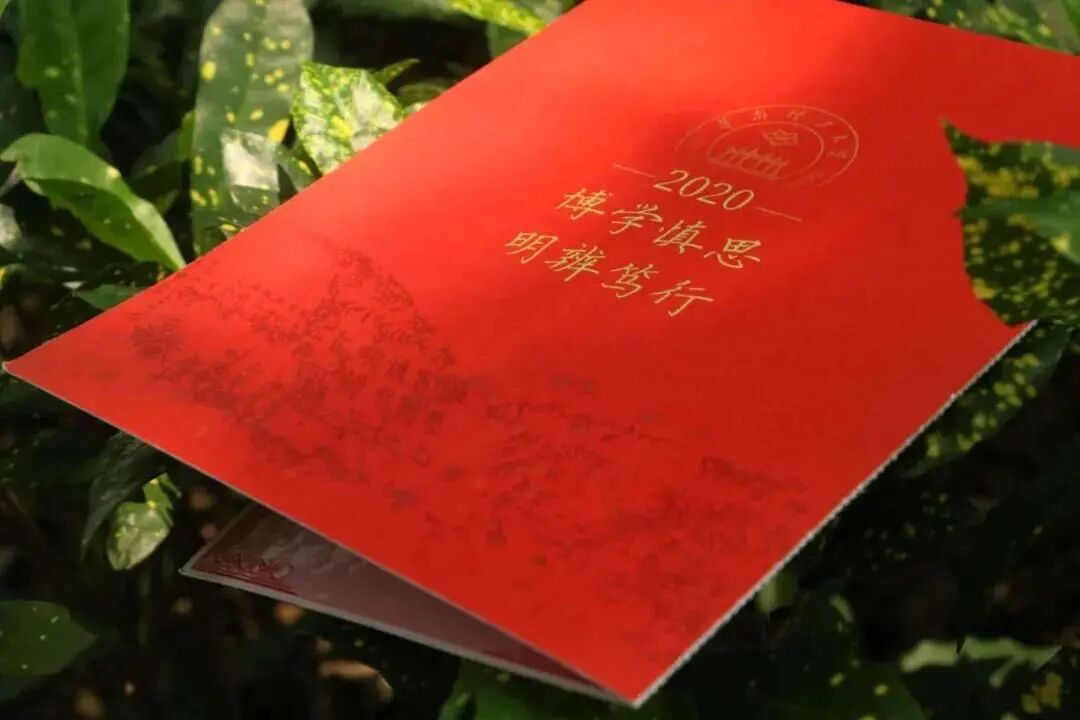 2020
博学慎思
明辨笃行